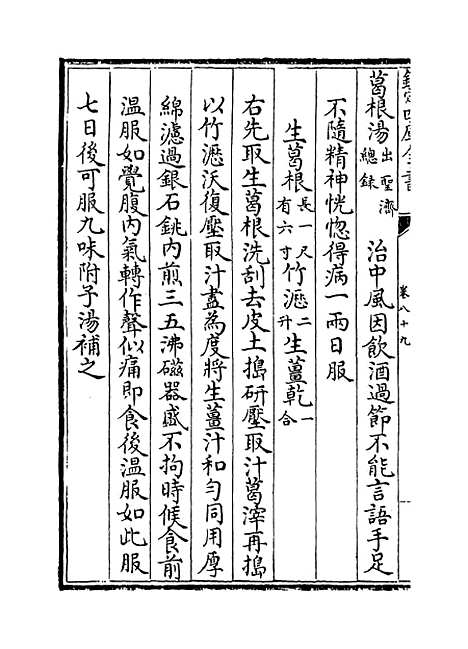 欽定四庫全書
卷八十九
葛根湯出聖濟總錄 治中風因飲酒過節不能言語手足
不隨精神恍惚得病一兩日服
生葛根長一尺有六寸竹瀝二升生薑乾一合
右先取生葛根洗刮去皮土搗研壓取汁葛滓再搗
以竹瀝沃復壓取汁盡為度將生薑汁和勻同用厚
綿濾過銀石銚內煎三五沸磁器盛不拘時候食前
溫服如覺腹內氣轉作聲似痛即食後溫服如此服
七日後可服九味附子湯補之